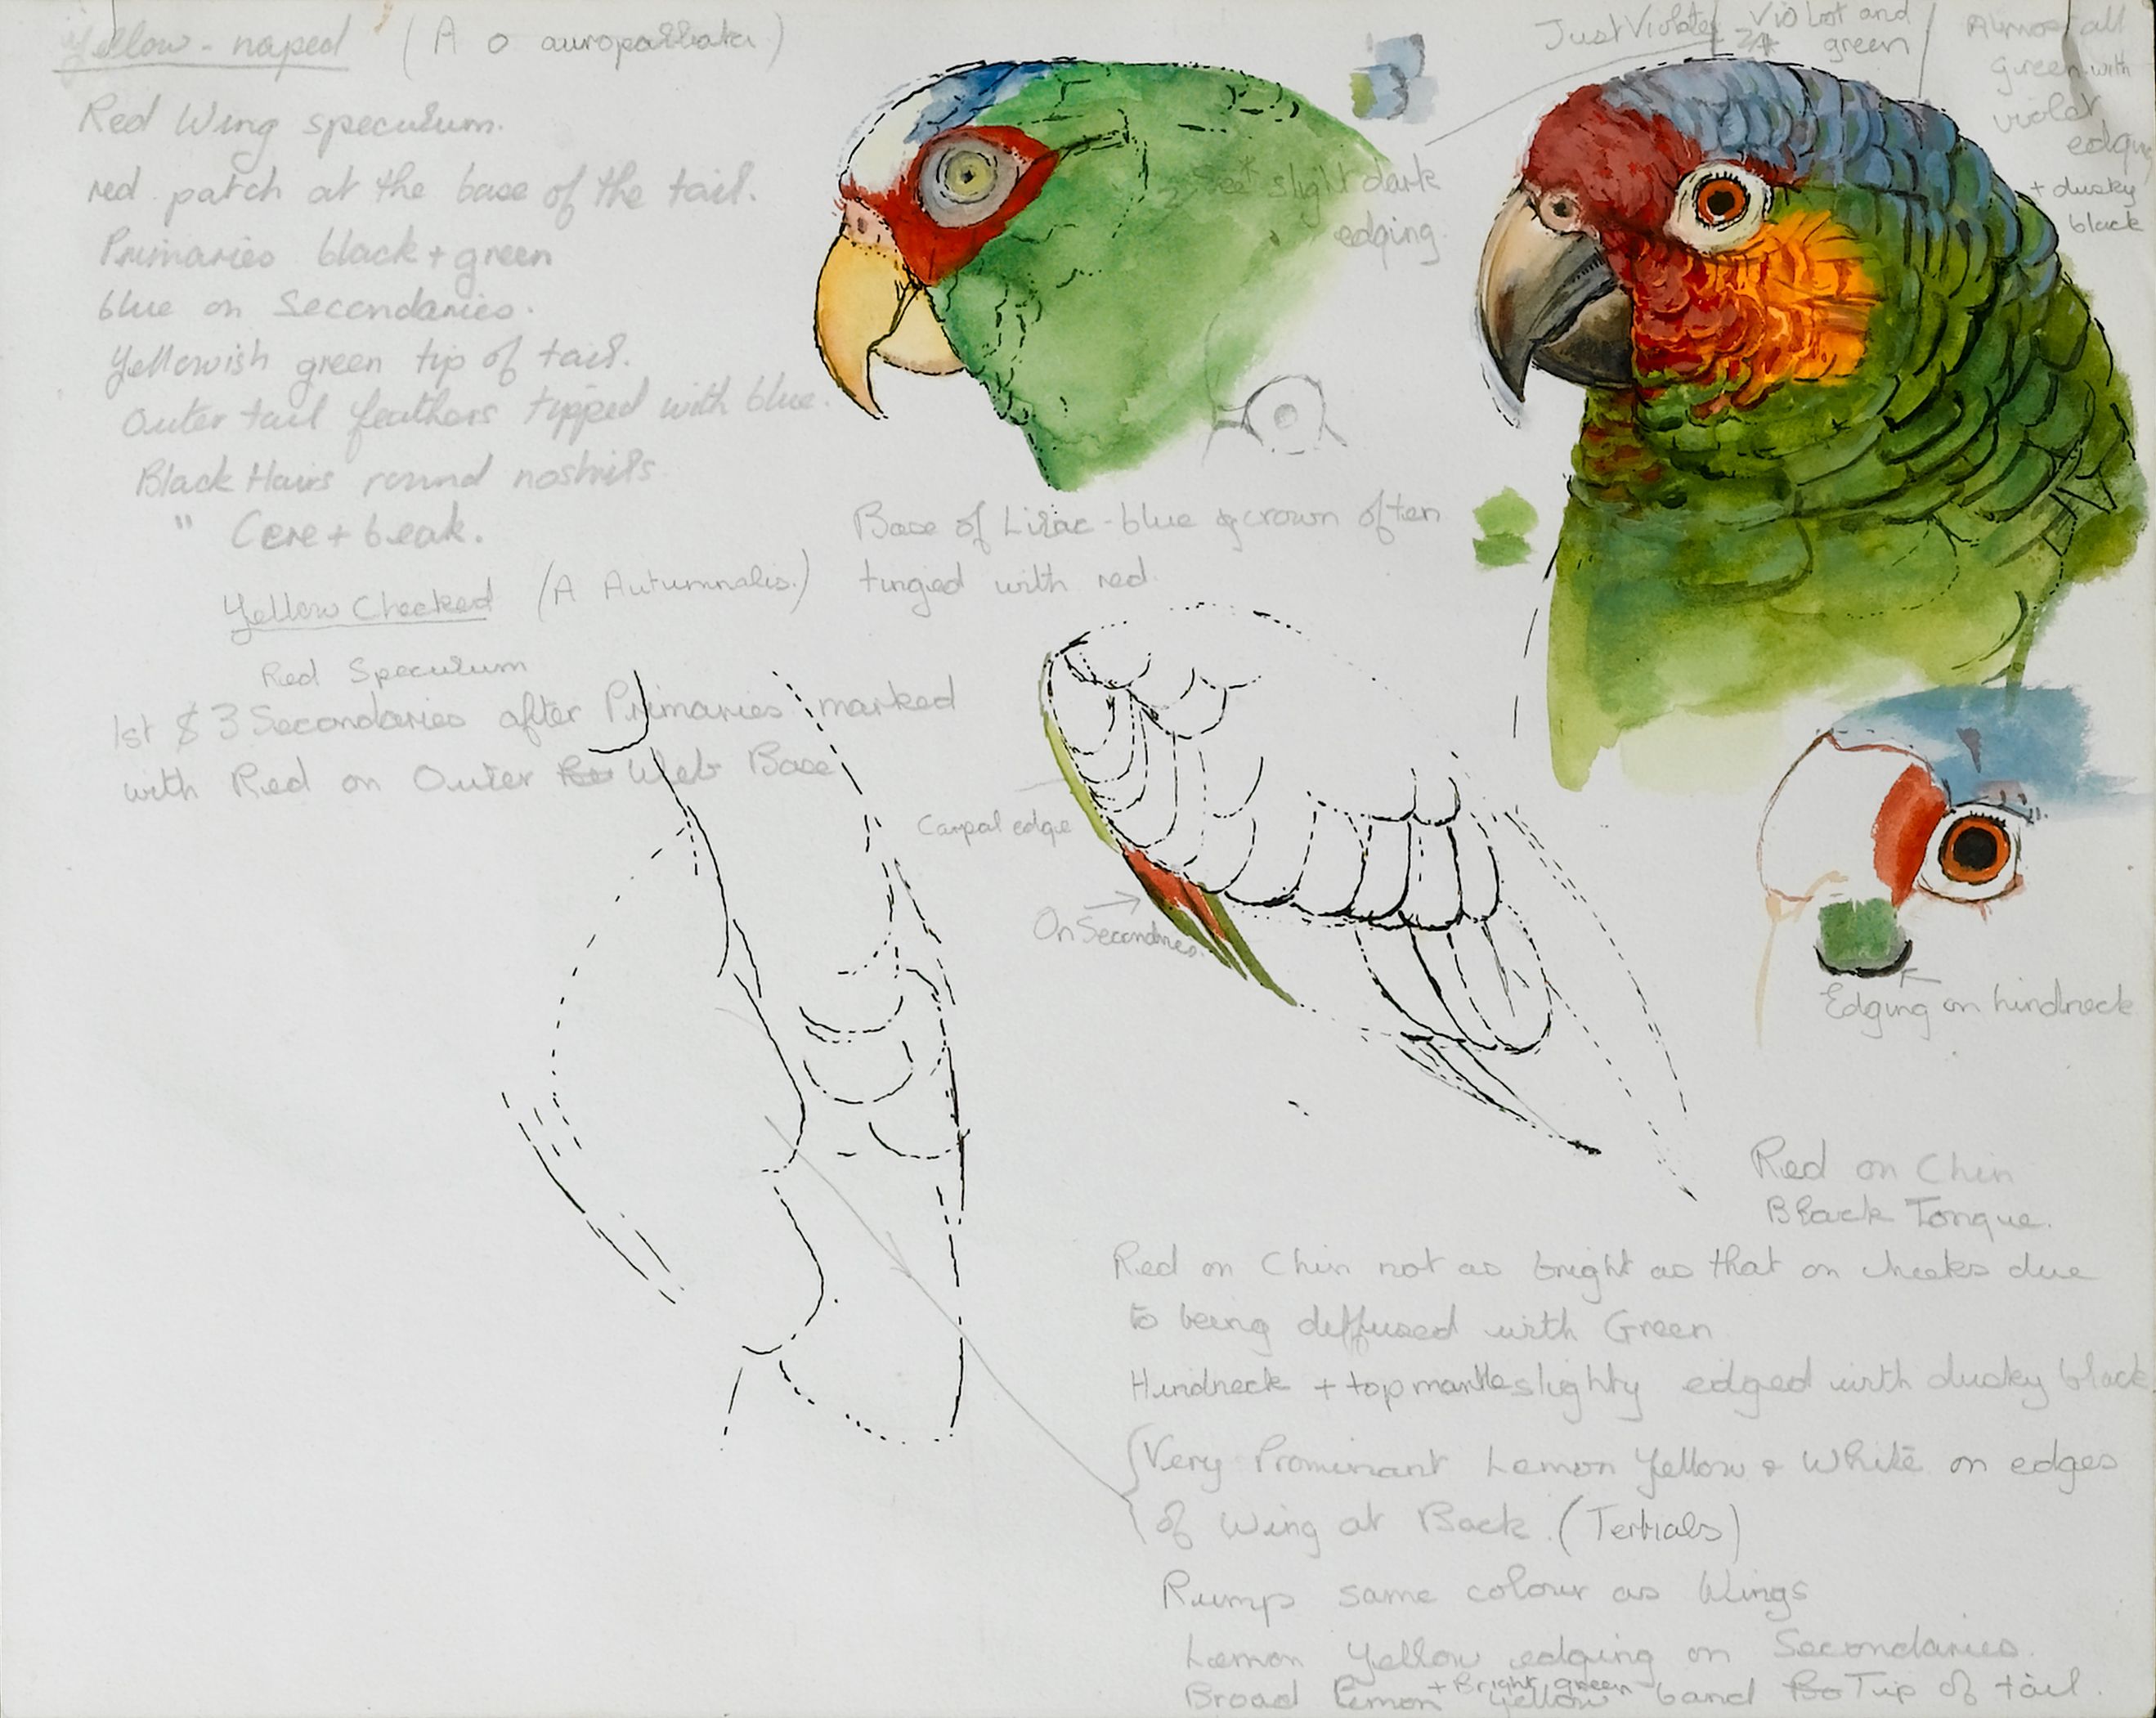 Yellow-naped (A o auropalliata)
Red Wing speculum.
red patch at the base of the tail.
Primaries black + green
blue on Secondaries.
Yellowish green tip of tail.
Outer tail feathers tipped with blue.
Black Hairs round nostrils
" Cere + beak.
Yellow Cheeked (A Autumnalis.)
Red Speculum
1st $ 3 Secondaries after Primaries marked
with Red on Outer Web Base
Just Violet
Violet and
green
Almost all
green with
violet
edging
+ dusky
black
slight dark
edging.
Base of Lilac-blue crown often
tinged with red.
Carpal edge
On Secondaries.
Edging on hindneck
Red on Chin
Black Tongue.
Red on Chin not as bright as that on cheeks due
to being diffused with Green
Hindneck + top mantle slighty edged with dusky black
Very Prominant Lemon Yellow & White on edges
of Wing at Back. (Tertials)
Rumps same colour as Wings
Lemon Yellow edging on Secondaries.
+ Bright green
Broad Lemon Yellow band Tip of tail.